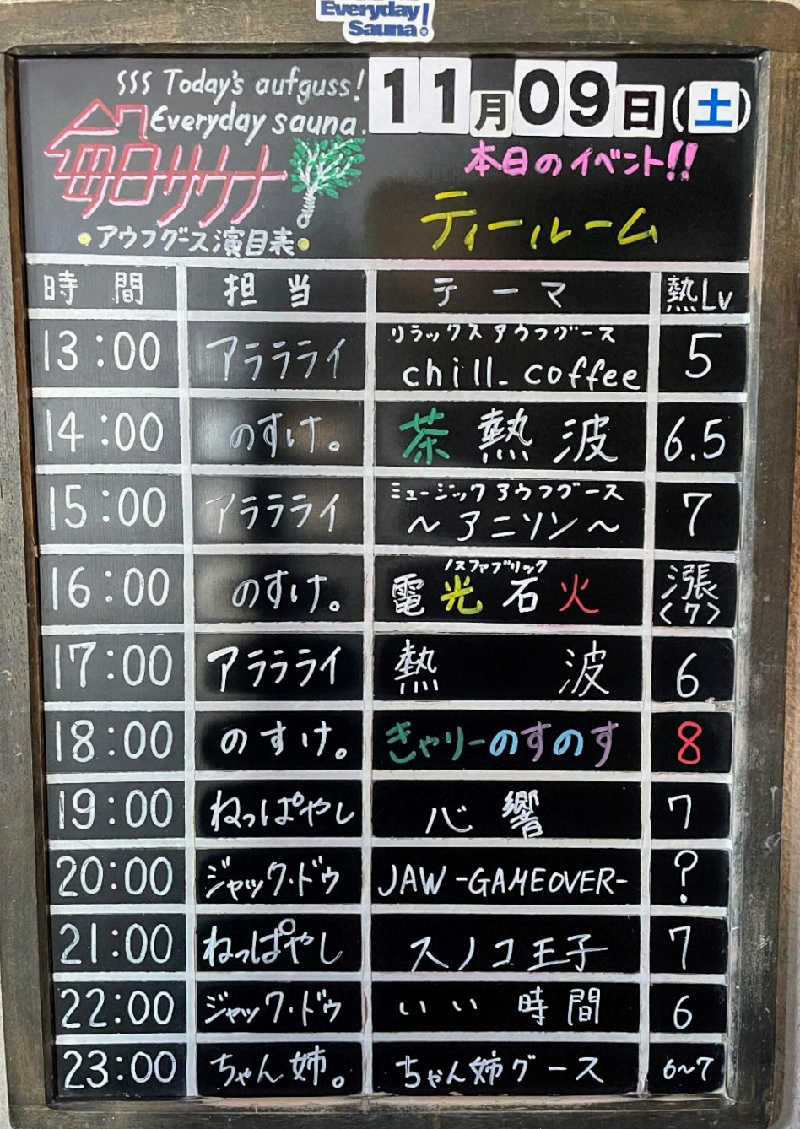 Everyday
Sauna!
Today's aufguss!
Everyday sauna.
毎日サウナ
アウフグース演目表
11月09日(土)
本日のイベント!!
ティールーム
時間 担当 テーマ 熱Lv
リラックスアウフグース
13:00 アララライ chill_coffee 5
14:00 のすけ。 茶熱波 6.5
ミュージックアウフグース
15:00 アララライ ～アニソン～ 7
ノスファブリック
16:00 のすけ。 電光石火 漲<7>
17:00 アララライ 熱波 6
18:00 のすけ。 きゃりーのすのす 8
19:00 ねっぱやし 心響 7
20:00 ジャック・ドゥ JAW-GAMEOVER- ?
21:00 ねっぱやし スノコ王子 7
22:00 ジャック・ドゥ いい時間 6
23:00 ちゃん姉。 ちゃん姉グース 6~7